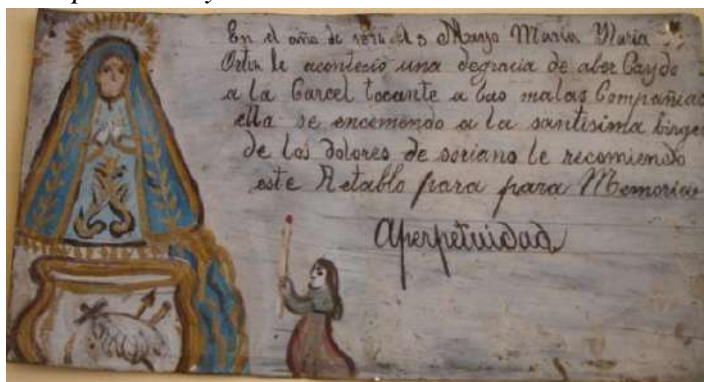 En el año de el 3 Mayo Maria Ylaria
Ortiz le acontecio una degracia de aber Caydo
a la Carcel tocante a las malas Compañias
ella se encomendo a la santisima birgen
de los dolores de soriano le recomiendo
este Retablo para para Memorias
Aperpetuidad